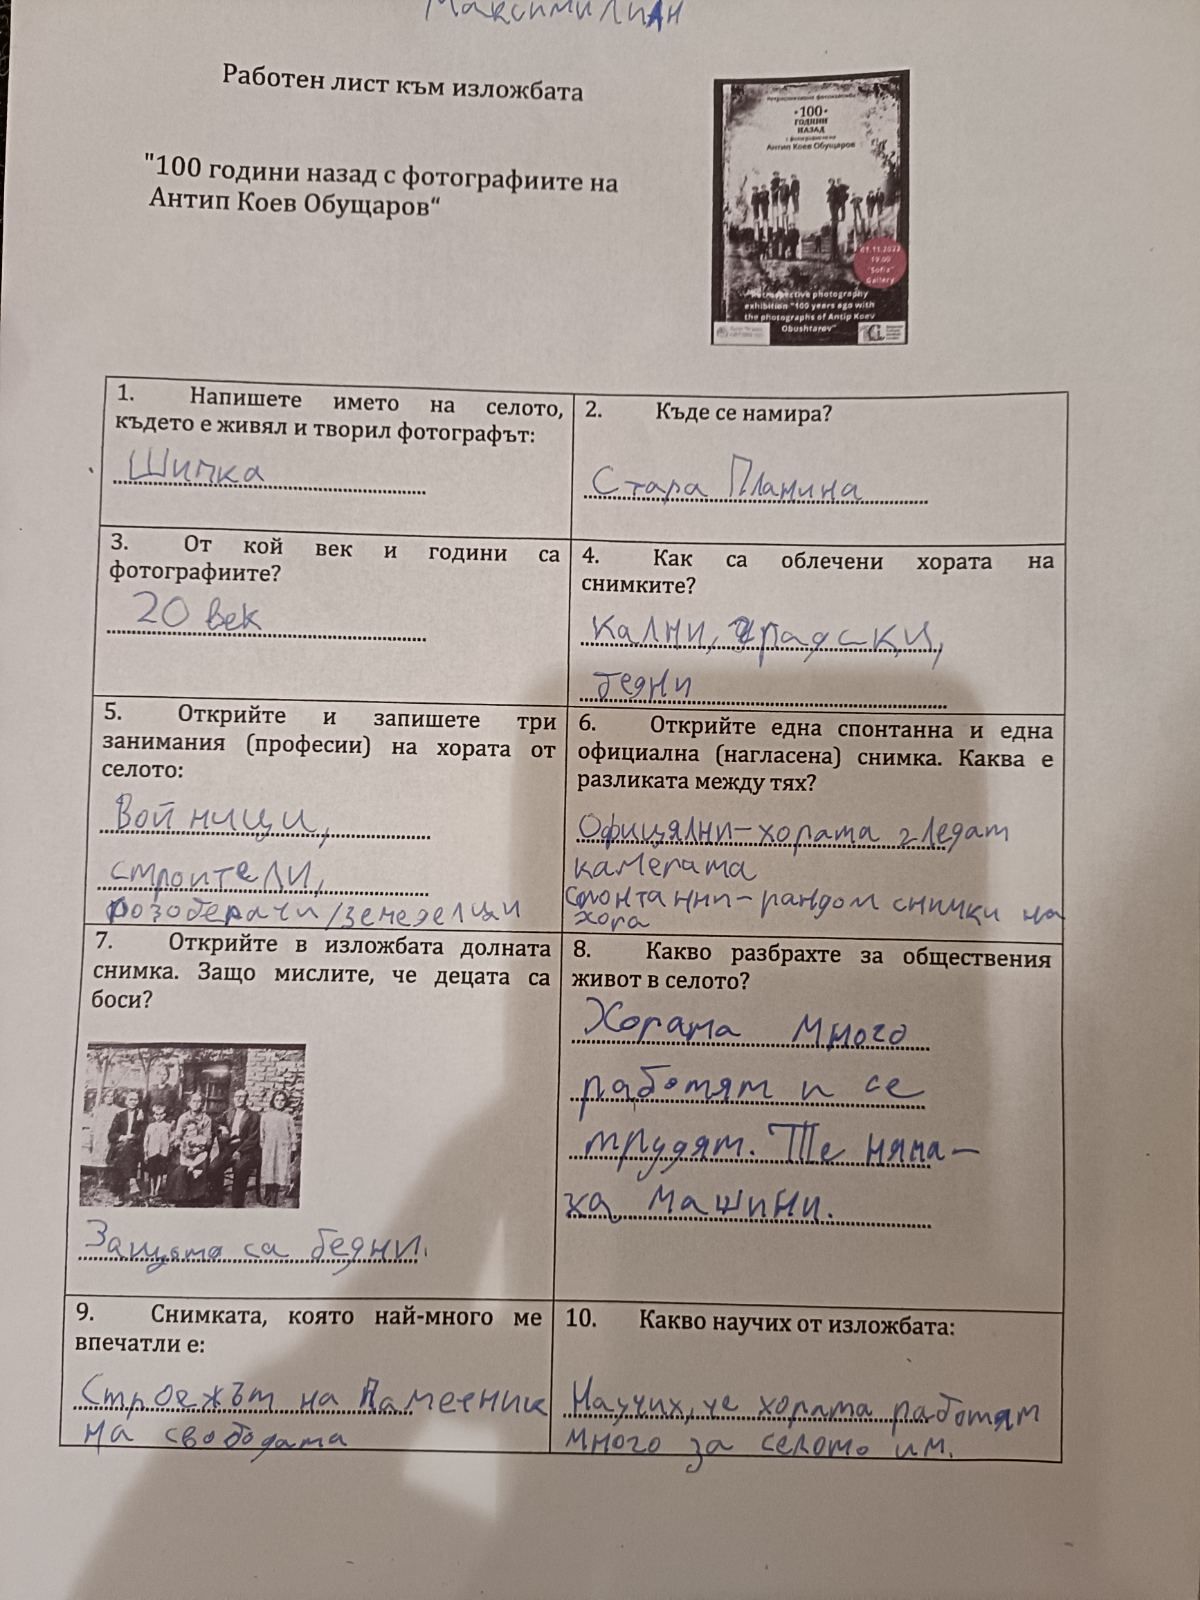 Максимилиан
Работен лист към изложбата
"100 години назад с фотографиите на
Антип Коев Обущаров“
·100·
ГОДИНИ
НАЗАД
с фотографиите на
Антип Коев Обущаров
01.11.2022
19.00
"Sofia"
Gallery
Retrospective photography
exhibition "100 years ago with
the photographs of Antip Koev
Obushtarov"
1. Напишете името на селото,
където е живял и творил фотографът:
Шипка
2. Къде се намира?
Стара Планина
3. От кой век и години са
фотографиите?
20 век
4. Как са облечени хората на
снимките?
кални, градски,
бедни
5. Открийте и запишете три
занимания (професии) на хората от
селото:
Войници,
строители,
розоберачи/земеделци
6. Открийте една спонтанна и една
официална (нагласена) снимка. Каква е
разликата между тях?
Офицялни-хората гледат
камерата
спонтанни-рандом снимки на
хора
7. Открийте в изложбата долната
снимка. Защо мислите, че децата са
боси?
Защото са бедни.
8. Какво разбрахте за обществения
живот в селото?
Хората много
работят и се
трудят. Те няма-
ха машини.
9. Снимката, която най-много ме
впечатли е:
Строежът на Паметник
на свободата
10. Какво научих от изложбата:
Научих, че хората работят
много за селото им.